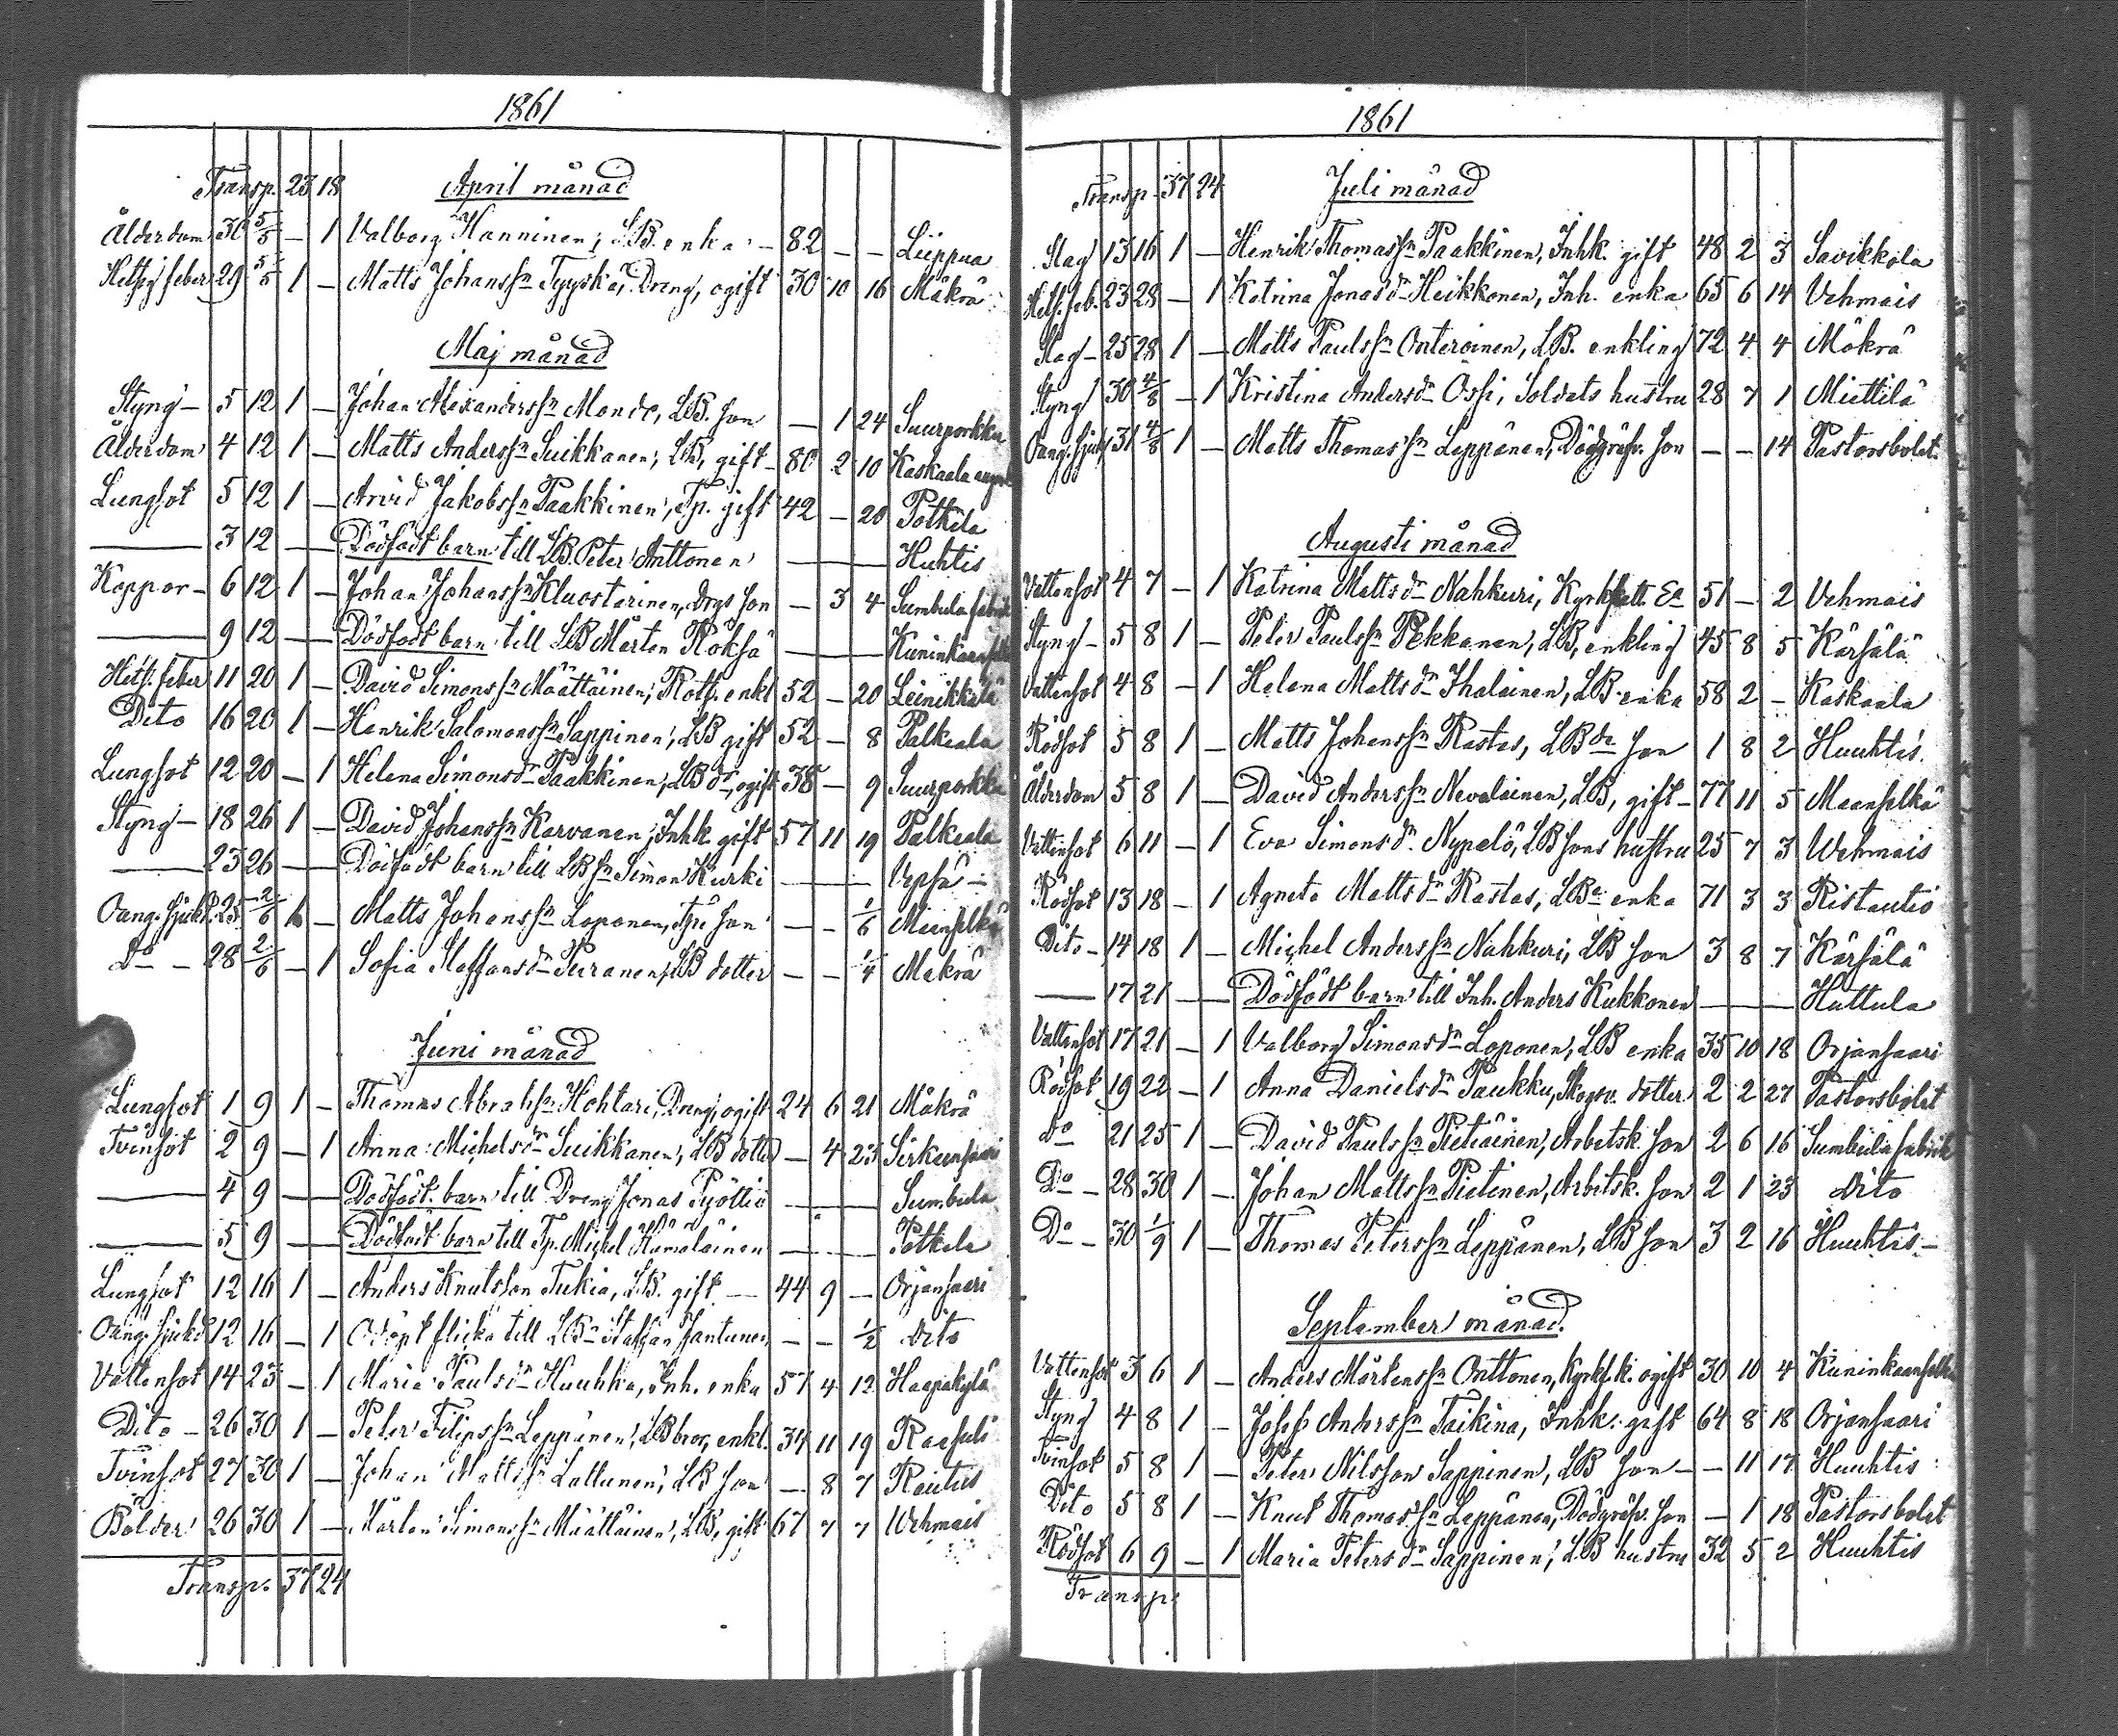 1861
Transp. 23 18 April månad
Ålderdom 30 5/5 — 1 Valborg Hanninen, LB. enka — 82 — — Liippua
Hetsig feber 29 5/5 1 — Matts Johanss:n Tyyskä, Dreng, ogift 30 10 16 Mäkrä
Maj månad
Styng — 5 12 1 — Johan Alexanderss:n Mondo, LB. son — 1 24 Suurporkku
Ålderdom 4 12 1 — Matts Anderss:n Suikkanen, LB, gift — 80 2 10 Kaskaala
Lungsot 5 12 1 — Arvid Jakobss:n Paakkinen, Tp. gift 42 — 20 Potkela
— 3 12 — — Dödfödt barn till LB. Peter Anttonen — — — Huhtis
Koppor — 6 12 1 — Johan Johanss:n Kluostarinen, drgs son — 3 4 Sumbula fabrik
— 9 12 — — Dödfödt barn till LB Mårten Röksä — — — Kuninkaanselkä
Hets. feber 11 20 1 — David Simonss:n Määttäinen, Roth. enkl 52 — 20 Leinikkälä
Dito 16 20 1 — Henrik Salomonss:n Sappinen, LB gift 52 — 8 Palkeala
Lungsot 12 20 — 1 Helena Simonsd:r Paakkinen, LB d:r, ogift 38 — 9 Suurporkku
Styng — 18 26 1 — David Johanss:n Karvanen, Inhk. gift 57 11 19 Palkeala
— 23 26 — — Dödfödt barn till LB s:n Simon Kurki — — — Vepsä —
Oang. sjukd. 25 2/6 1 — Matts Johanss:n Loponen, Tp. son — — 1/6 Maanselkä
D:o — 28 2/6 — 1 Sofia Staffansd:r Puranen, LB dotter — — 1/4 Makrä
Juni månad
Lungsot 1 9 1 — Thomas Abrahs:n Hohtari, Dreng, ogift 24 6 21 Mäkrä
Tvinsot 2 9 — 1 Anna Michelsd:r Suikkanen, LB dotter — 4 23 Sirkunsaari
— 4 9 — — Dödfödt barn till Dreng Jonas Pyöttiö — — — Sumbula
— 5 9 — — Dödfödt barn till Tp. Michel Hämäläinen — — — Potkela
Lungsot 12 16 1 — Anders Knutsson Tukia, LB. gift — 44 9 — Orjansaari
Oang. sjukd 12 16 — 1 Odöpt flicka till LB:n Staffan Jantunen — — 1/2 Dito
Vattensot 14 23 — 1 Maria Paulsd:r Huuhka, Inh. enka 57 4 12 Haapakylä
Dito — 26 30 1 — Peter Filipss:n Leppänen, LB bror, enkl. 34 11 19 Raasuli
Tvinsot 27 30 1 — Johan Mattss:n Lallunen, LB son — 8 7 Rautus
Bölder 26 30 1 — Mårten Simonss:n Määttäinen, LB, gift 67 7 7 Wehmais
Transp. 37 24
1861
Transp. 37 24 Juli månad
Slag 13 16 1 — Henrik Thomass:n Paakkinen, Inhk. gift 48 2 3 Savikkola
Hets. feb. 23 28 — 1 Katrina Jonasd:r Heikkonen, Inh. enka 65 6 14 Vehmais
Slag — 25 28 1 — Matts Paulss:n Onteroinen, LB. enkling 72 4 4 Mäkrä
Styng 30 4/8 — 1 Kristina Andersd:r Ossi, Soldats hustru 28 7 1 Miettilä
Oang. sjukd 31 4/8 1 — Matts Thomass:n Leppänen, Dödgräfv. son — — 14 Pastorsbolet
Augusti månad
Vattensot 4 7 — 1 Katrina Mattsd:r Nahkuri, Kyrkfatt. E:a 51 — 2 Vehmais
Styng — 5 8 1 — Peter Paulss:n Pekkanen, LB, enkling 45 8 5 Kärsälä
Vattensot 4 8 — 1 Helena Mattsd:r Ihalainen, LB. enka 58 2 — Kaskaala
Rödsot 5 8 1 — Matts Johanss:n Rastas, LB d:r son 1 8 2 Huuhtis
Ålderdom 5 8 1 — David Anderss:n Nevalainen, LB, gift — 77 11 5 Maanselkä
Vattensot 6 11 — 1 Eva Simonsd:r Nypelö, LB sons hustru 25 7 3 Wehmais
Rödsot 13 18 — 1 Agneta Mattsd:r Rastas, LB:s enka 71 3 3 Ristautio
Dito — 14 18 1 — Michel Anderss:n Nahkuri, LB son 3 8 7 Kärsälä
— 17 21 — — Dödfödt barn till Inh. Anders Kukkonen — — — Huttula
Vattensot 17 21 — 1 Valborg Simonsd:r Loponen, LB enka 35 10 18 Orjansaari
Rödsot 19 22 — 1 Anna Danielsd:r Paukku, Skogsv. dotter 2 2 27 Pastorsbolet
D:o 21 25 1 — David Paulss:n Pietiäinen, Arbetsk. son 2 6 16 Sumbula fabrik
D:o — 28 30 1 — Johan Mattss:n Pietinen, Arbetsk. son 2 1 23 Dito
D:o — 30 1/9 1 — Thomas Peterss:n Leppänen, LB son 3 2 16 Huuhtis —
September månad.
Vattensot 3 6 1 — Anders Mårtenss:n Onttonen, kyrkf.k. ogift 30 10 4 Kuninkaanselkä
Styng 4 8 1 — Josef Anderss:n Taikina, Inhk. gift 64 8 18 Orjansaari
Tvinsot 5 8 1 — Peter Nilsson Sappinen, LB son — — 11 17 Huuhtis
Dito 5 8 1 — Knut Thomass:n Leppänen, Dödgräfv. son — 1 18 Pastorsbolet
Rödsot 6 9 — 1 Maria Petersd:r Sappinen, LB hustru 32 5 2 Huuhtis
Transp.